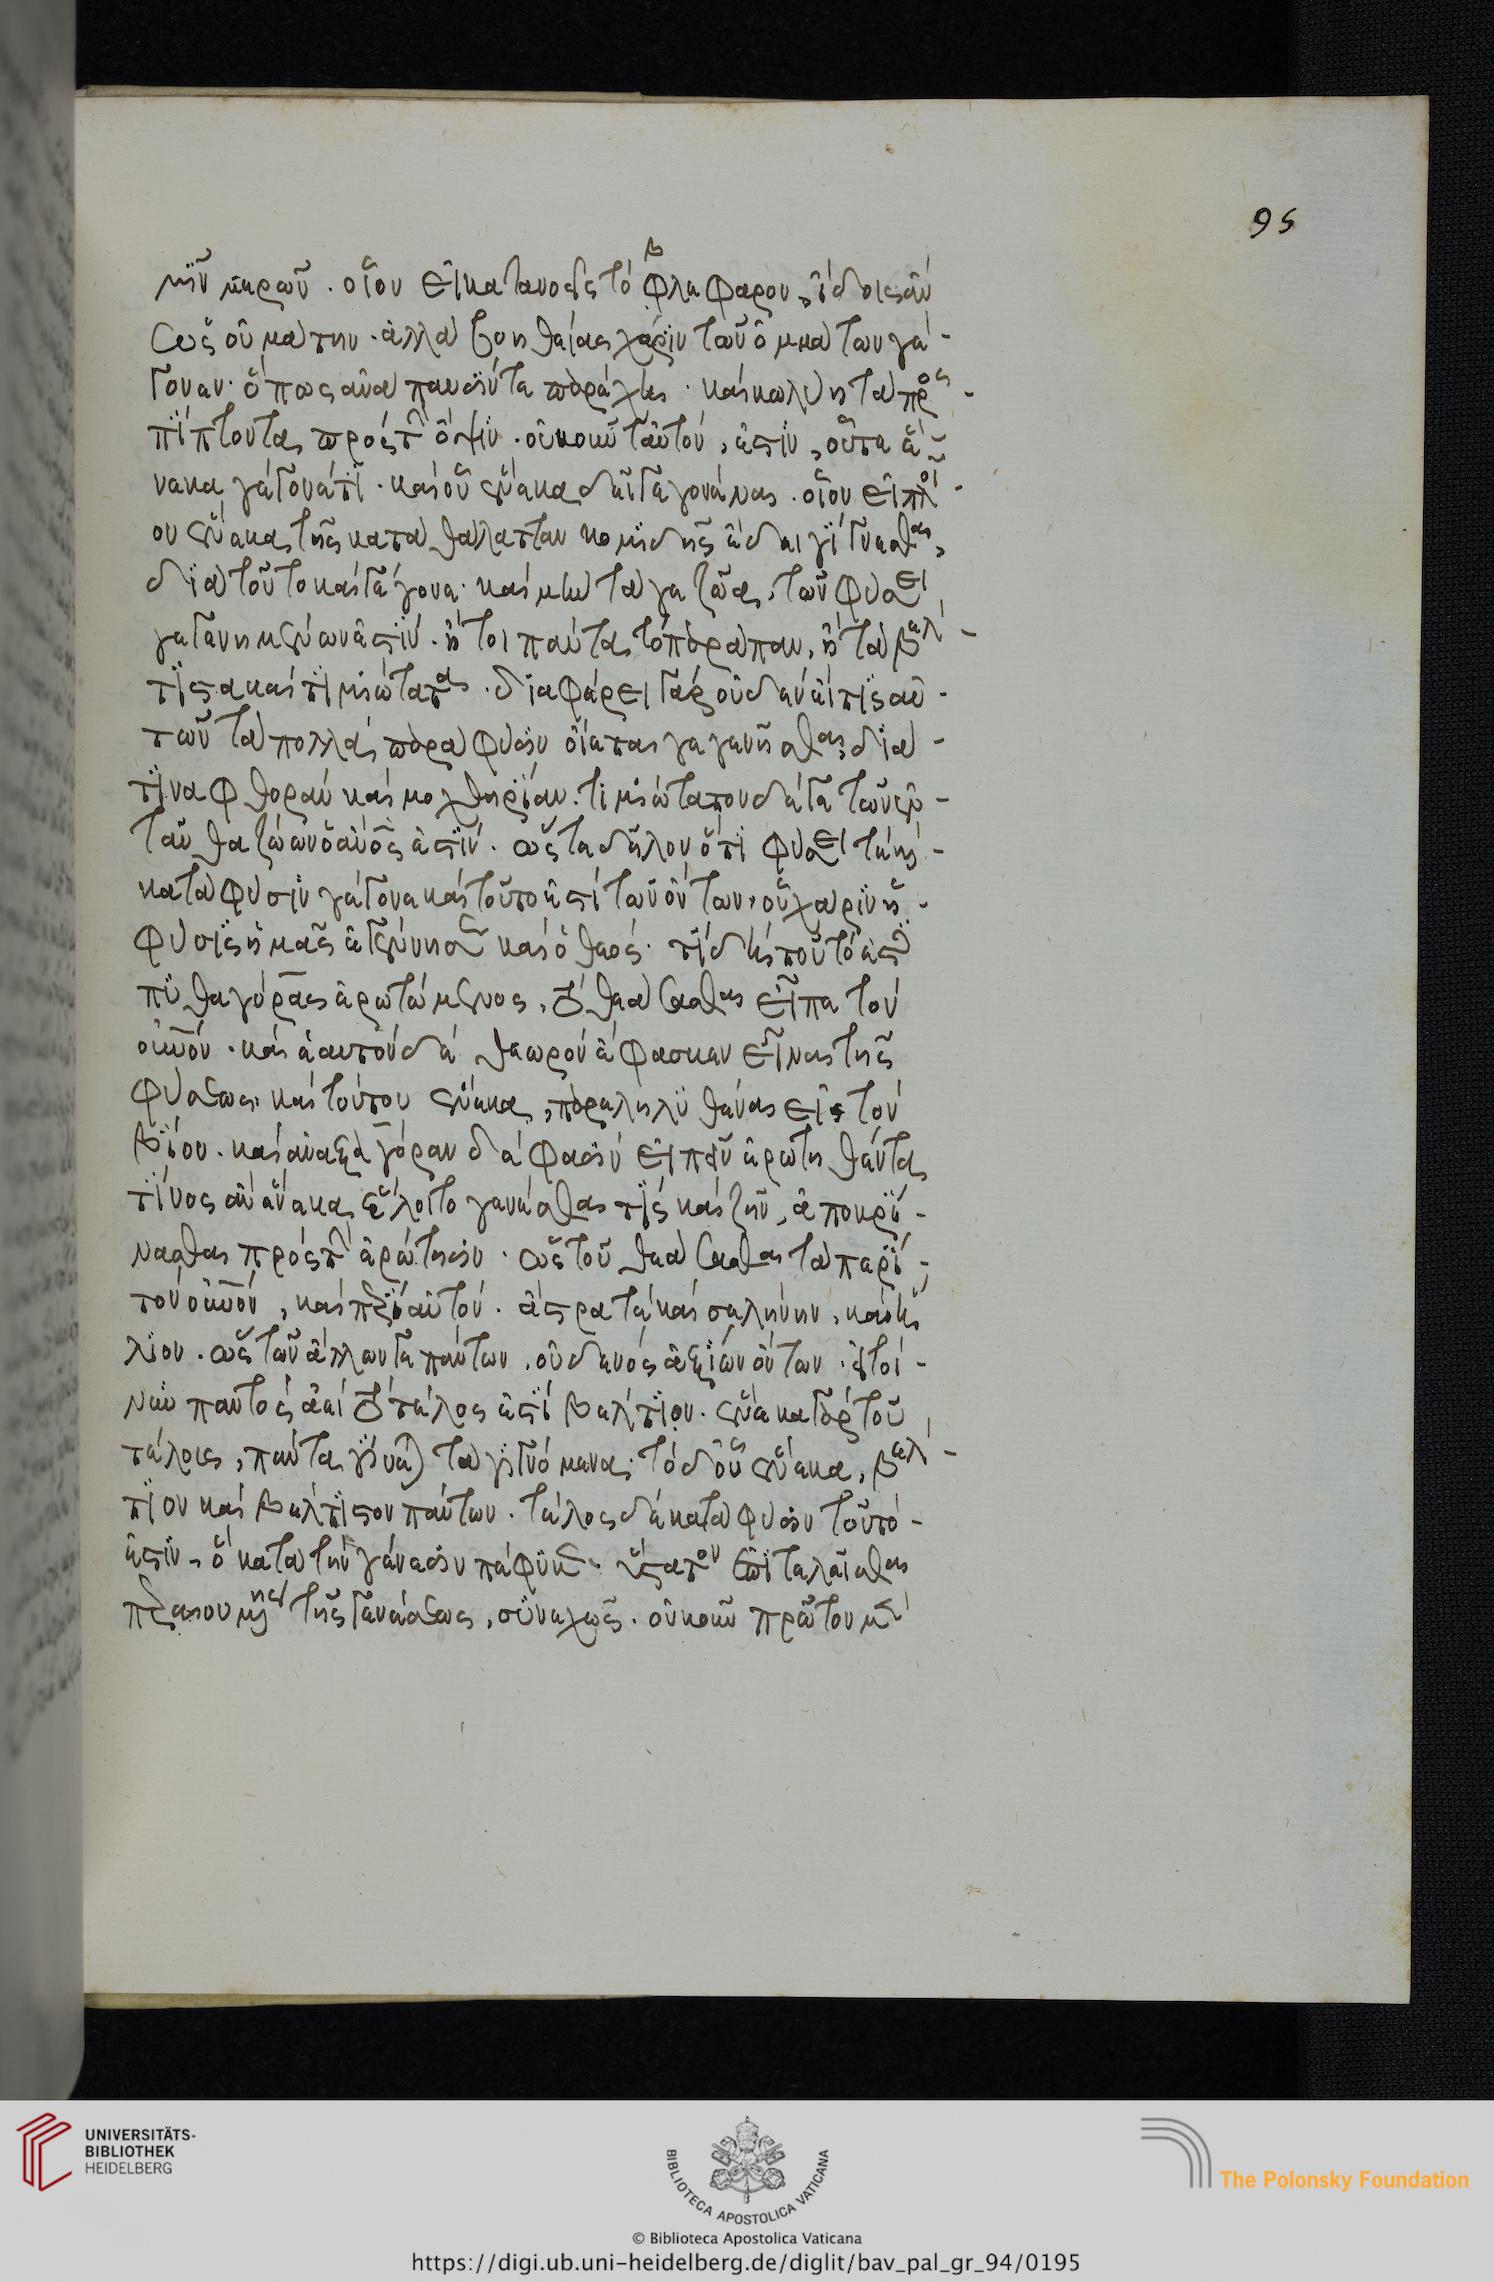 οἷον εἰ κατανοεῖς τὸ φλέφαρον, ἴδοις ἂν
β
ὡς οὐ μάτην. ἀλλὰ βοηθείας χάριν τῶν ὀμμάτων γέ-
γονεν. ὅπως ἀνάπαυσίν τε παρέχῃ. καὶ κωλύῃ τὰ προσ-
πίπτοντα πρὸς τὴν ὄψιν. οὐκοῦν ταὐτόν, ἐστιν, οὗτε ἕ-
νεκα γέγονέ τι. καὶ οὗ ἕνεκα δεῖ γεγονέναι. οἷον εἰ πλοῖ-
ον ἕνεκα τῆς κατὰ θάλατταν κομιδῆς ἔδει γίγνεσθαι,
διὰ τοῦτο καὶ γέγονε. καὶ μὴν τά γε ζῶα, τῶν φύσει
γεγενημένων ἐστίν. ἤτοι πάντα τὸ παράπαν, ἢ τὰ βελ-
τιστα καὶ τιμιώτατα. διαφέρει γὰρ οὐδὲν εἴ τις αὐ-
τῶν τὰ πολλὰ παρὰ φύσιν οἴεται γεγενῆσθαι, διά
τινα φθορὰν καὶ μοχθηρίαν. τιμιώτατον δέ γε τῶν ἐν-
ταῦθα ζώων ὁ ἄνος ἐστίν. ὥστε δῆλον ὅτι φύσει τε καὶ
κατὰ φύσιν γέγονε καὶ τοῦτο ἐστὶ τῶν ὄντων, οὗ χάριν ἡ
φύσις ἡμᾶς ἐγέννησε καὶ ὁ θεός. τί δὴ τοῦτό ἐστι
πυθαγόρας ἐρωτώμενος, τὸ θεάσασθαι εἶπε τὸν
οὐνόν. καὶ ἑαυτὸν δὲ θεωρὸν ἔφασκεν εἶναι τῆς
φύσεως, καὶ τούτου ἕνεκα, παρεληλυθέναι εἰς τὸν
βίον. καὶ ἀναξαγόραν δέ φασιν εἰπεῖν ἐρωτηθέντα,
τίνος ἂν ἕνεκα ἕλοιτο γενέσθαι τις καὶ ζῆν, ἀποκρί-
νασθαι πρὸς τὴν ἐρώτησιν. ὡς τοῦ θεάσασθαι τὰ περὶ
τὸν οὐνόν, καὶ περὶ αὐτόν. ἄστρα τε καὶ σελήνην, καὶ ἥ-
λιον. ὡς τῶν ἄλλων γε πάντων, οὐδενὸς ἀξίων ὄντων. ἔτι τοί-
νυν παντὸς ἀεὶ τὸ τέλος ἐστὶ βέλτιον. ἕνεκα γὰρ τοῦ
τέλους, πάντα γίνεται τὰ γιγνόμενα. τὸ δ' οὗ ἕνεκα, βέλ-
τιον καὶ βέλτιστον πάντων. τέλος δὲ κατὰ φύσιν τοῦτό
ἐστιν, ὃ κατὰ τὴν γένεσιν πέφυκεν ὕστατον ἐπιτελεῖσθαι
περαινομένης τῆς γενέσεως, συνεχῶς. οὐκοῦν πρῶτον μὲν
95
UNIVERSITÄTS-
BIBLIOTHEK
HEIDELBERG
BIBLIOTECA APOSTOLICA VATICANA
The Polonsky Foundation
© Biblioteca Apostolica Vaticana
https://digi.ub.uni-heidelberg.de/diglit/bav_pal_gr_94/0195